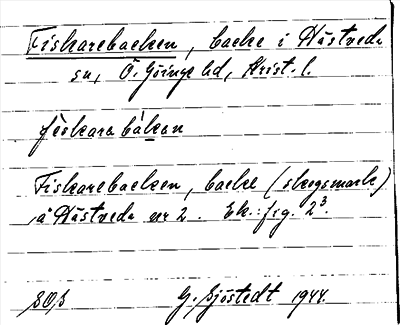 Fiskarebacken, backe i Hästveda
sn, Ö. Göinge hd, Krist. l.
fèskarabákan
Fiskarebacken, backe (skogsmark)
å Hästveda nr 2. Ek.: frg. 2³.
G. Sjöstedt 1944.